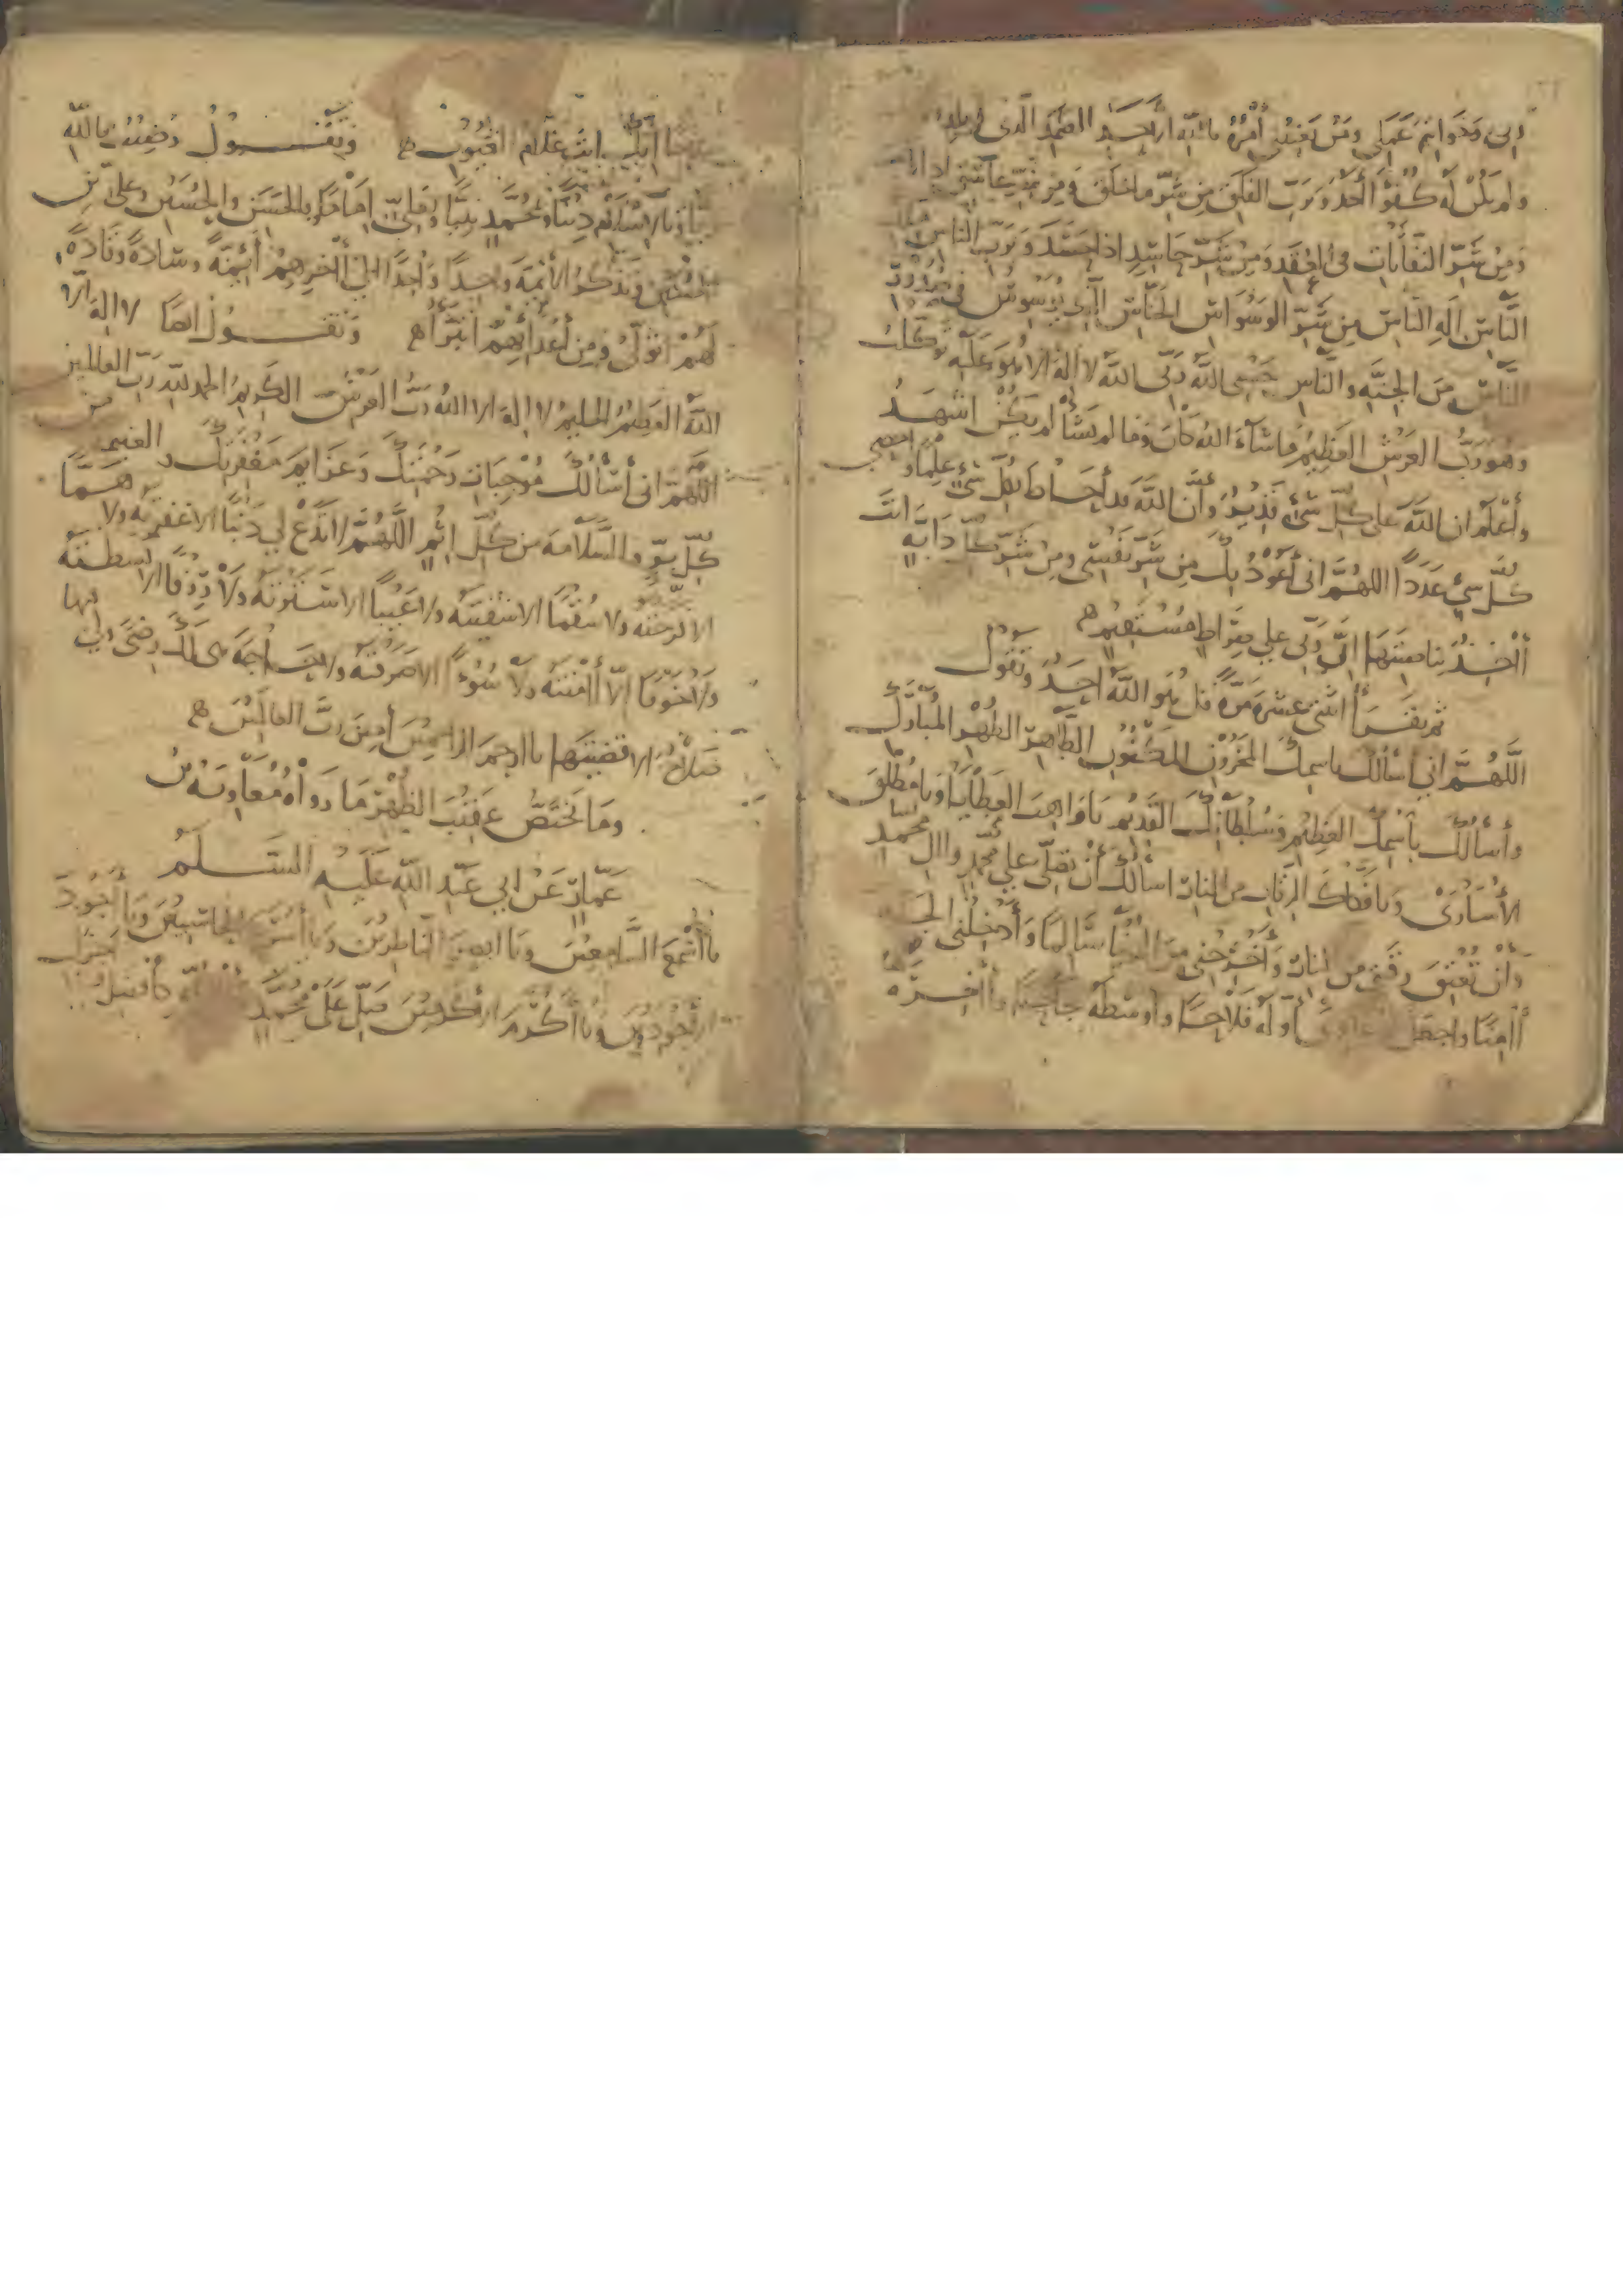 ديني وخواتيم عملي ومن يعنيني أمره بالله الواحد الأحد الصمد الذي لم يلد
ولم يكن له كفوا أحد وبرب الفلق من شر ما خلق ومن شر غاسق اذا
ومن شر النفاثات في العقد ومن شر حاسد اذا حسد وبرب الناس
الناس اله الناس من شر الوسواس الخناس الذي يوسوس في صدور
الناس من الجنة والناس حسبي الله ربي الله لا اله الا هو عليه توكلت
وهو رب العرش العظيم ما شاء الله كان وما لم يشأ لم يكن اشهد
وأعلم ان الله على كل شيء قدير وأن الله قد أحاط بكل شيء علما وأحصى
كل شيء عددا اللهم اني أعوذ بك من شر نفسي ومن شر كل دابة انت
آخذ بناصيتها ان ربي على صراط مستقيم
ثم يقرأ اثنتي عشرة مرة قل هو الله احد وتقول
اللهم اني اسألك باسمك المخزون المكنون الطاهر الطهر المبارك
وأسألك باسمك العظيم وسلطانك القديم يا واهب العطايا ويا مطلق
الأسارى ويا فكاك الرقاب من النار اسألك أن تصلي على محمد وآل محمد
وأن تعتق رقبتي من النار وأخرجني من الدنيا سالما وأدخلني الجنة
آمنا واجعل دعاوي أوله فلاحا واوسطه نجاحا وآخره
انك انت علام الغيوب وتقول رضيت بالله
ربا وبالاسلام دينا وبمحمد نبيا وبعلي اماما وبالحسن والحسين وعلي بن
الحسين وتذكر الأئمة واحدا واحدا الى آخرهم أئمة وسادة وقادة
بهم اتولى ومن أعدائهم اتبرأ وتقول ايضا لا اله الا
الله العظيم الحليم لا اله الا الله رب العرش الكريم الحمد لله رب العالمين
اللهم اني أسألك موجبات رحمتك وعزائم مغفرتك والغنيمة من
كل بر والسلامة من كل اثم اللهم لا تدع لي ذنبا الا غفرته ولا هما
الا فرجته ولا سقما الا شفيته ولا عيبا الا سترته ولا رزقا الا بسطته
ولا خوفا الا آمنته ولا سوءا الا صرفته ولا حاجة هي لك رضى ولي فيها
صلاح الا قضيتها يا ارحم الراحمين آمين رب العالمين
ومما يختص عقيب الظهر ما رواه معاوية بن
عمار عن ابي عبد الله عليه السلام
يا أسمع السامعين ويا ابصر الناظرين ويا أسرع الحاسبين ويا أجود
الأجودين ويا أكرم الأكرمين صل على محمد وآل محمد كأفضل